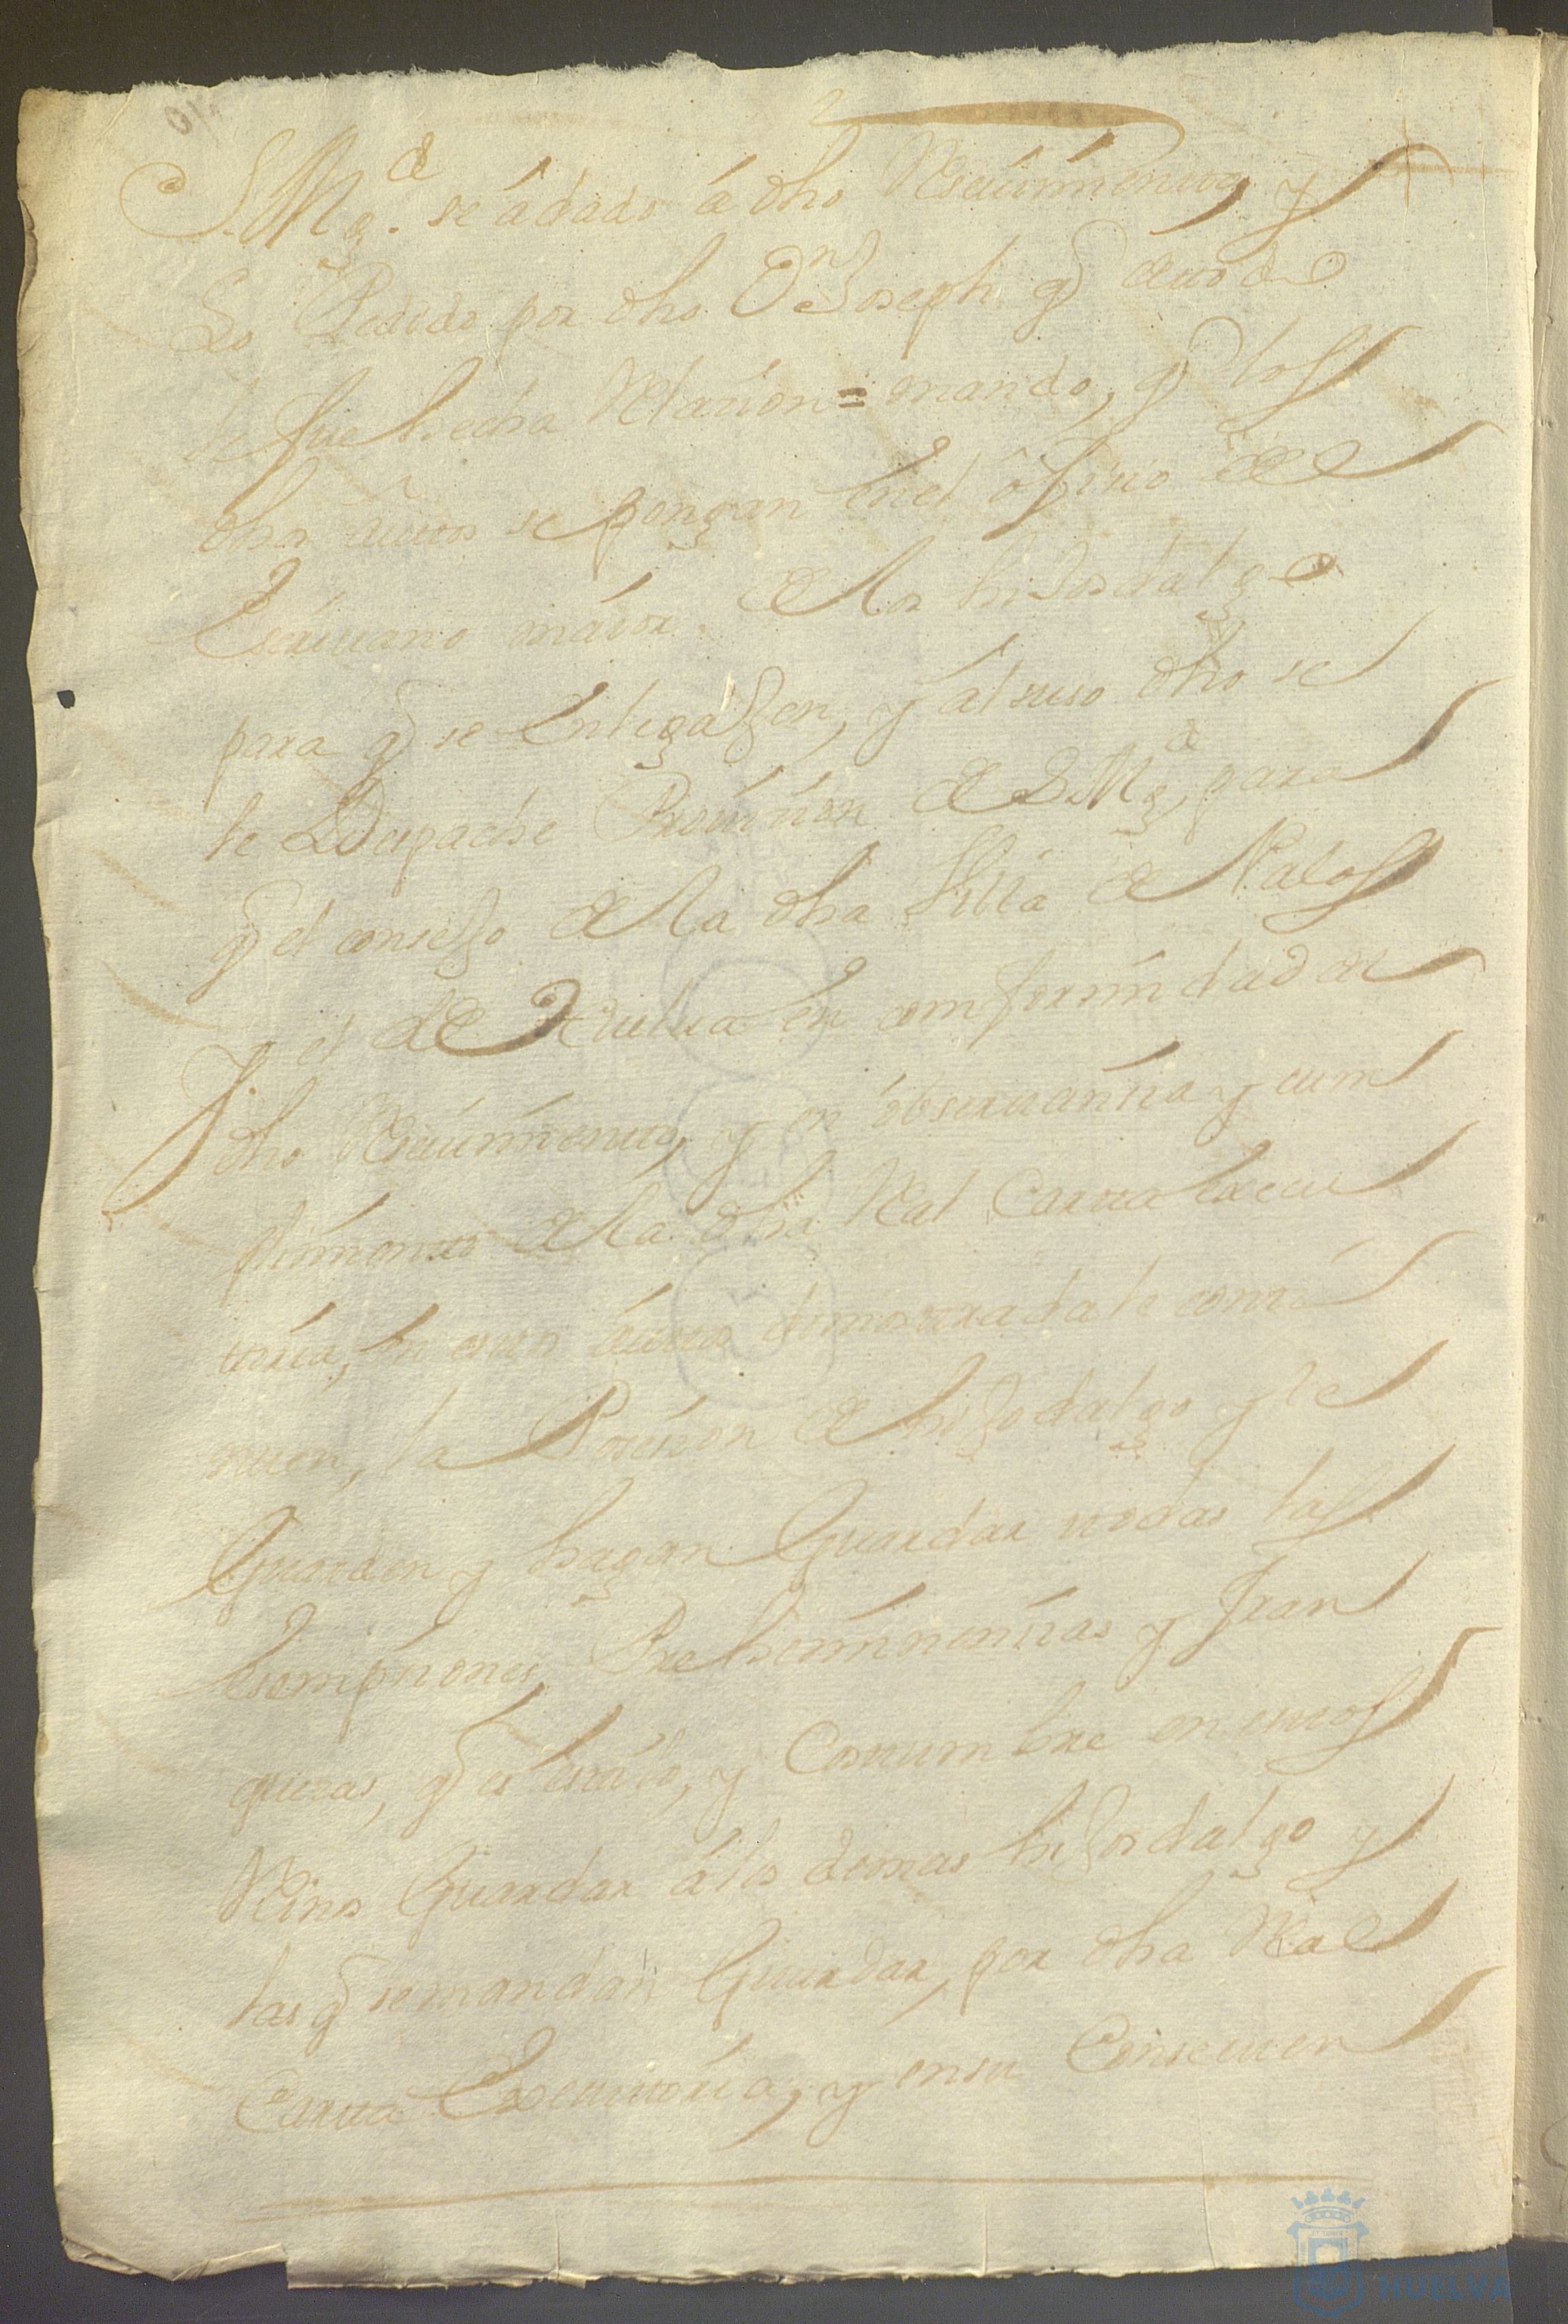 S. Mgd. se á dado á dho Resciuimiento, y
Lo Pedido por dho Dn Joseph q de todo
le fue hecha Relación = mando, q los
dhos autos se pongan en el ôficio de el
Escriuano maior de los hijosdalgo
para q se entregassen, y al suso dho se
le Despache Prouición de S Mgd, para
q el consejo de la dha Villa de Palos
y el de Huelua en comformidad del
dho Resciuimiento, y en obseruancia y cum
plimiento de la dha Real Carta Execu
toria, en estos autos demostrada le conti
nuen, la Poseción de hijodalgo y le
Guarden y hagan Guardar todas las
esempciones, Preheminencias y fran
quezas, q es estilo, y Costumbre en estos
Reinos Guardar á los demas hijosdalgo y
las q se mandan Guardar, por dha Real
Carta Executoria, y en su Consequen
HUELVA